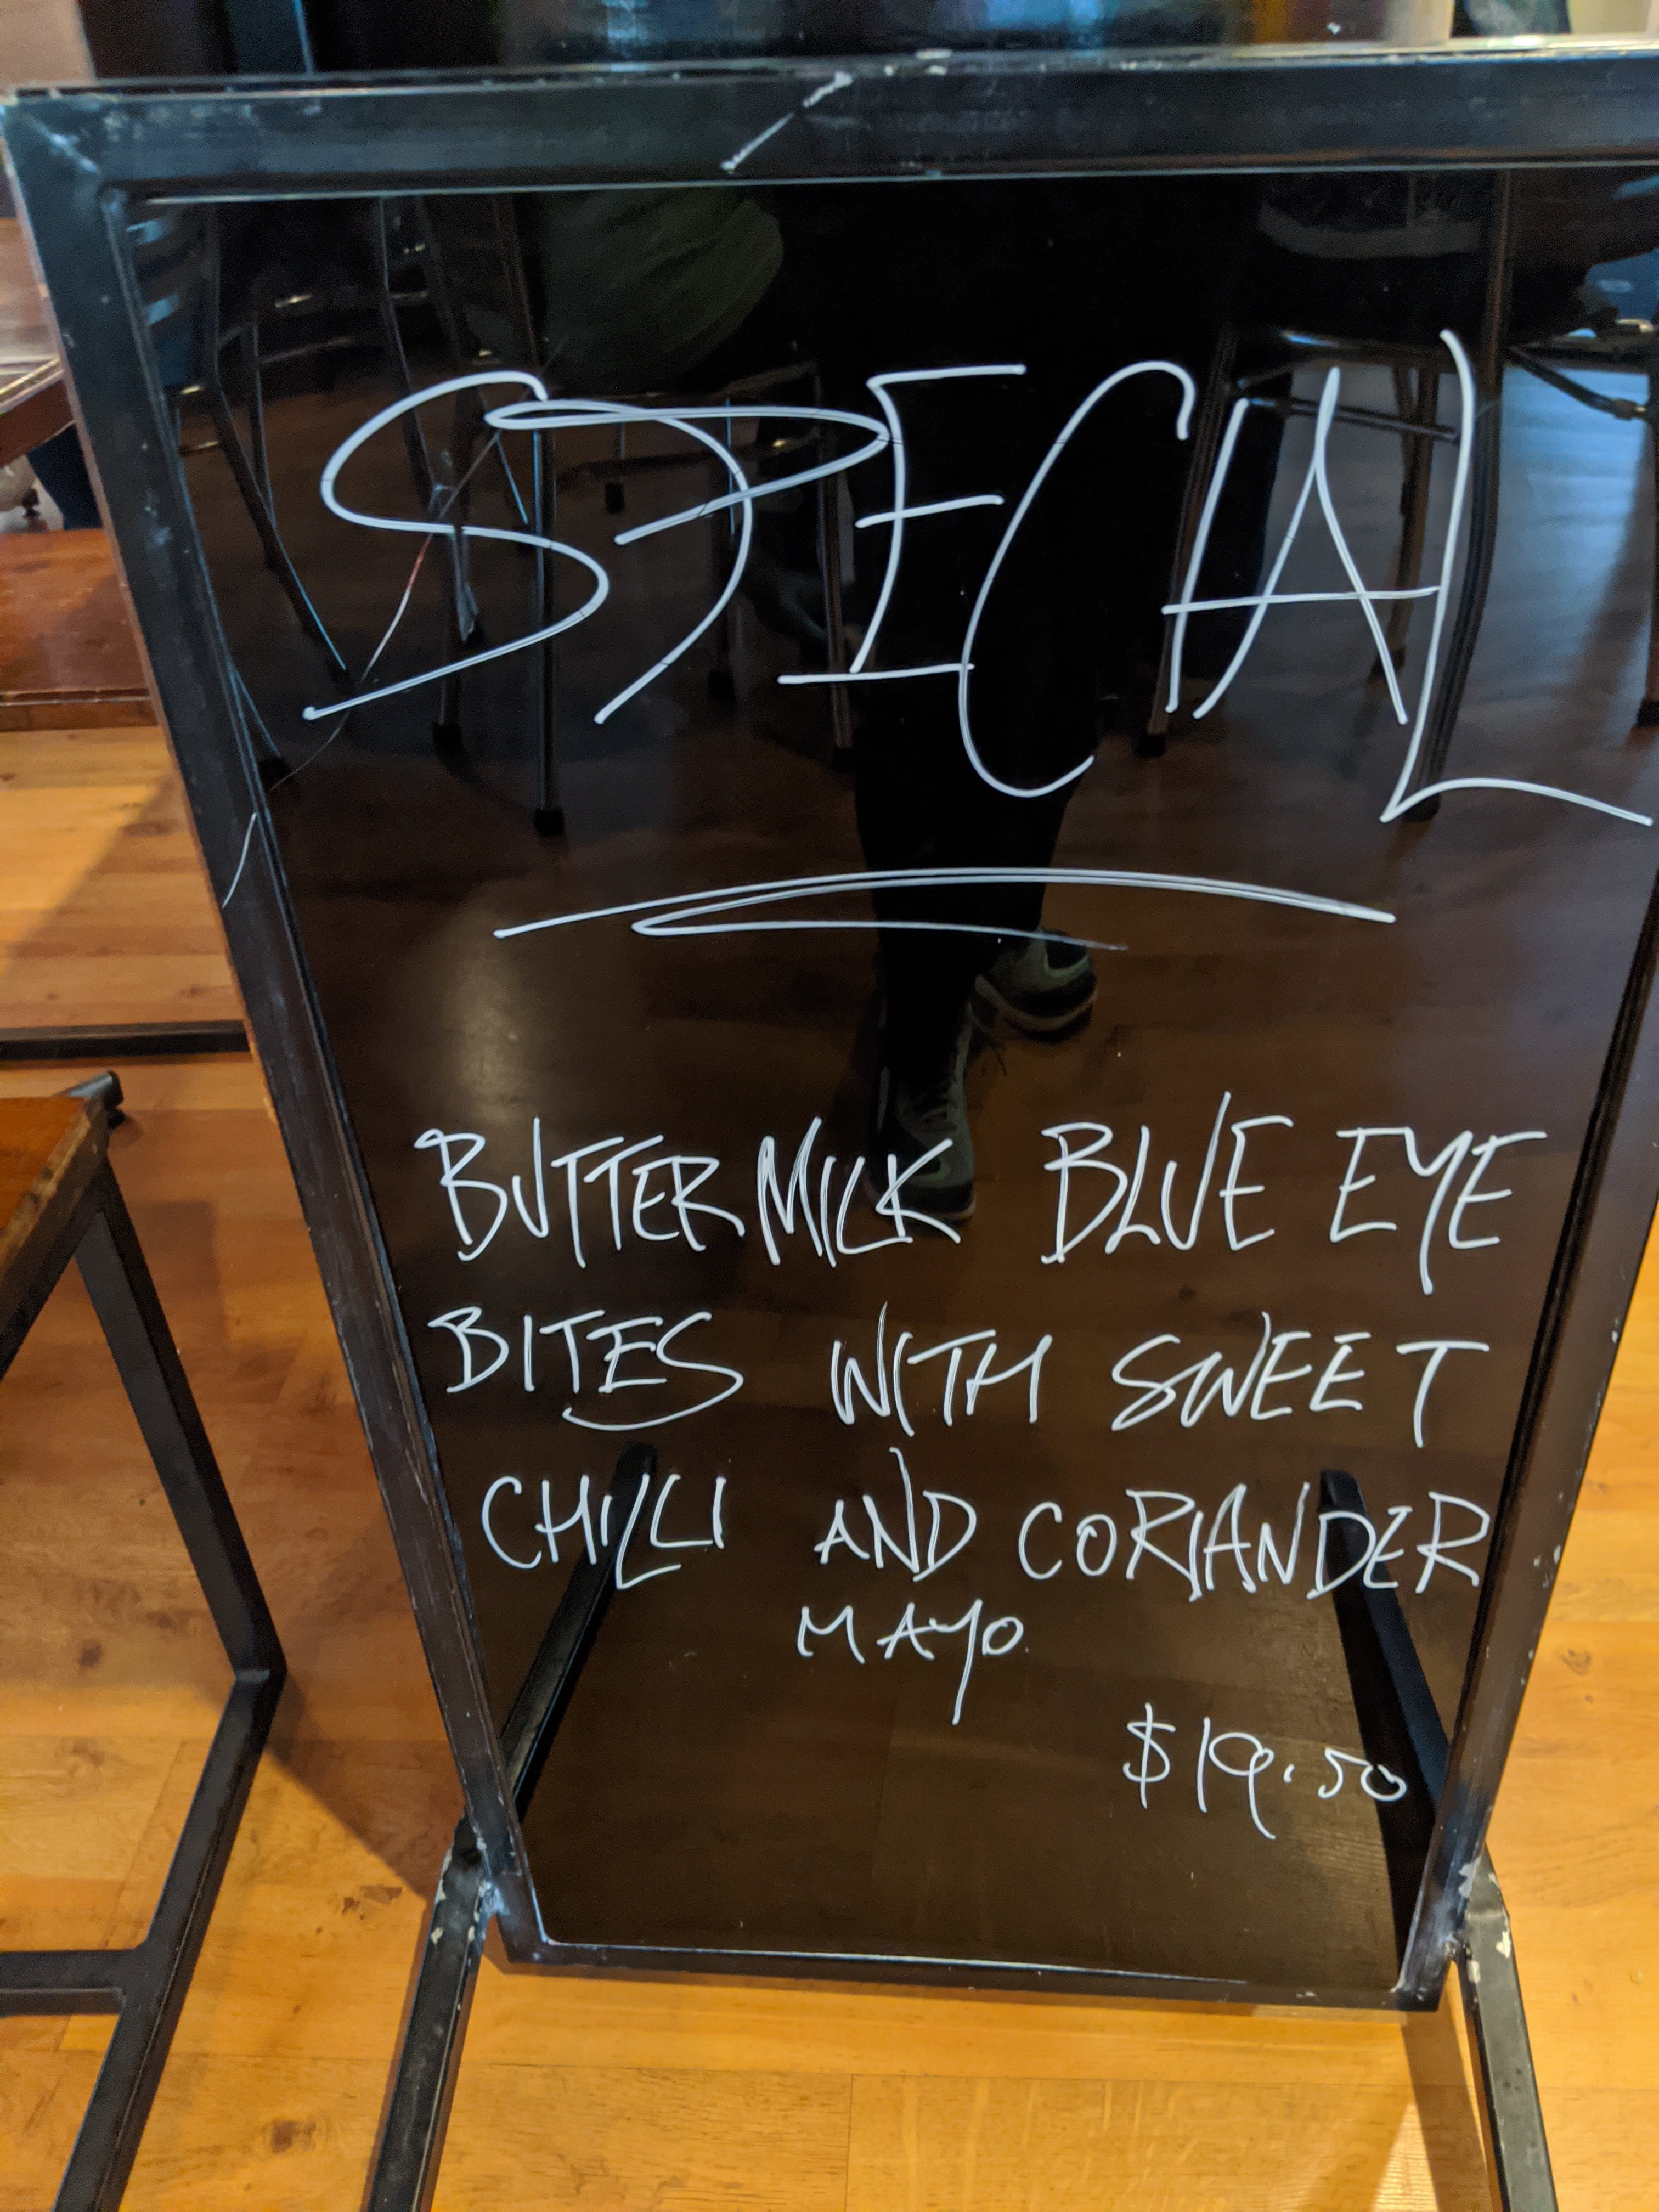 SPECIAL
BUTTERMILK BLUE EYE
BITES WITH SWEET
CHILLI AND CORIANDER
MAYO
$19.50